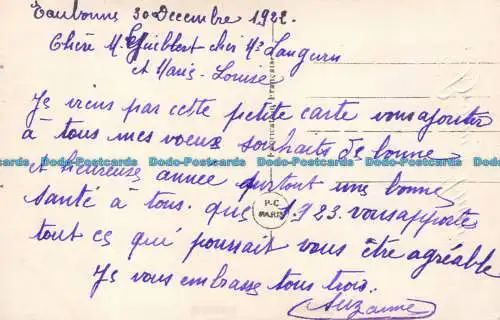 Eaubonne 30 Decembre 1922.
Chère Me Guibbert cher Mr Langurn
et Marie-Louise
Je viens par cette petite carte vous ajouter
à tous mes voeux souhaits de bonne
et heureuse année surtout une bonne
santé à tous. que 1923. vous apporte
tout ce que pourrait vous être agréable
Je vous embrasse tous trois.
Suzanne
P-C
PARIS
Fabrication Française
Dodo-Postcards Dodo-Postcards Dodo-Postcards Dodo-Postcards Dodo-Postcards Dodo-Postcards